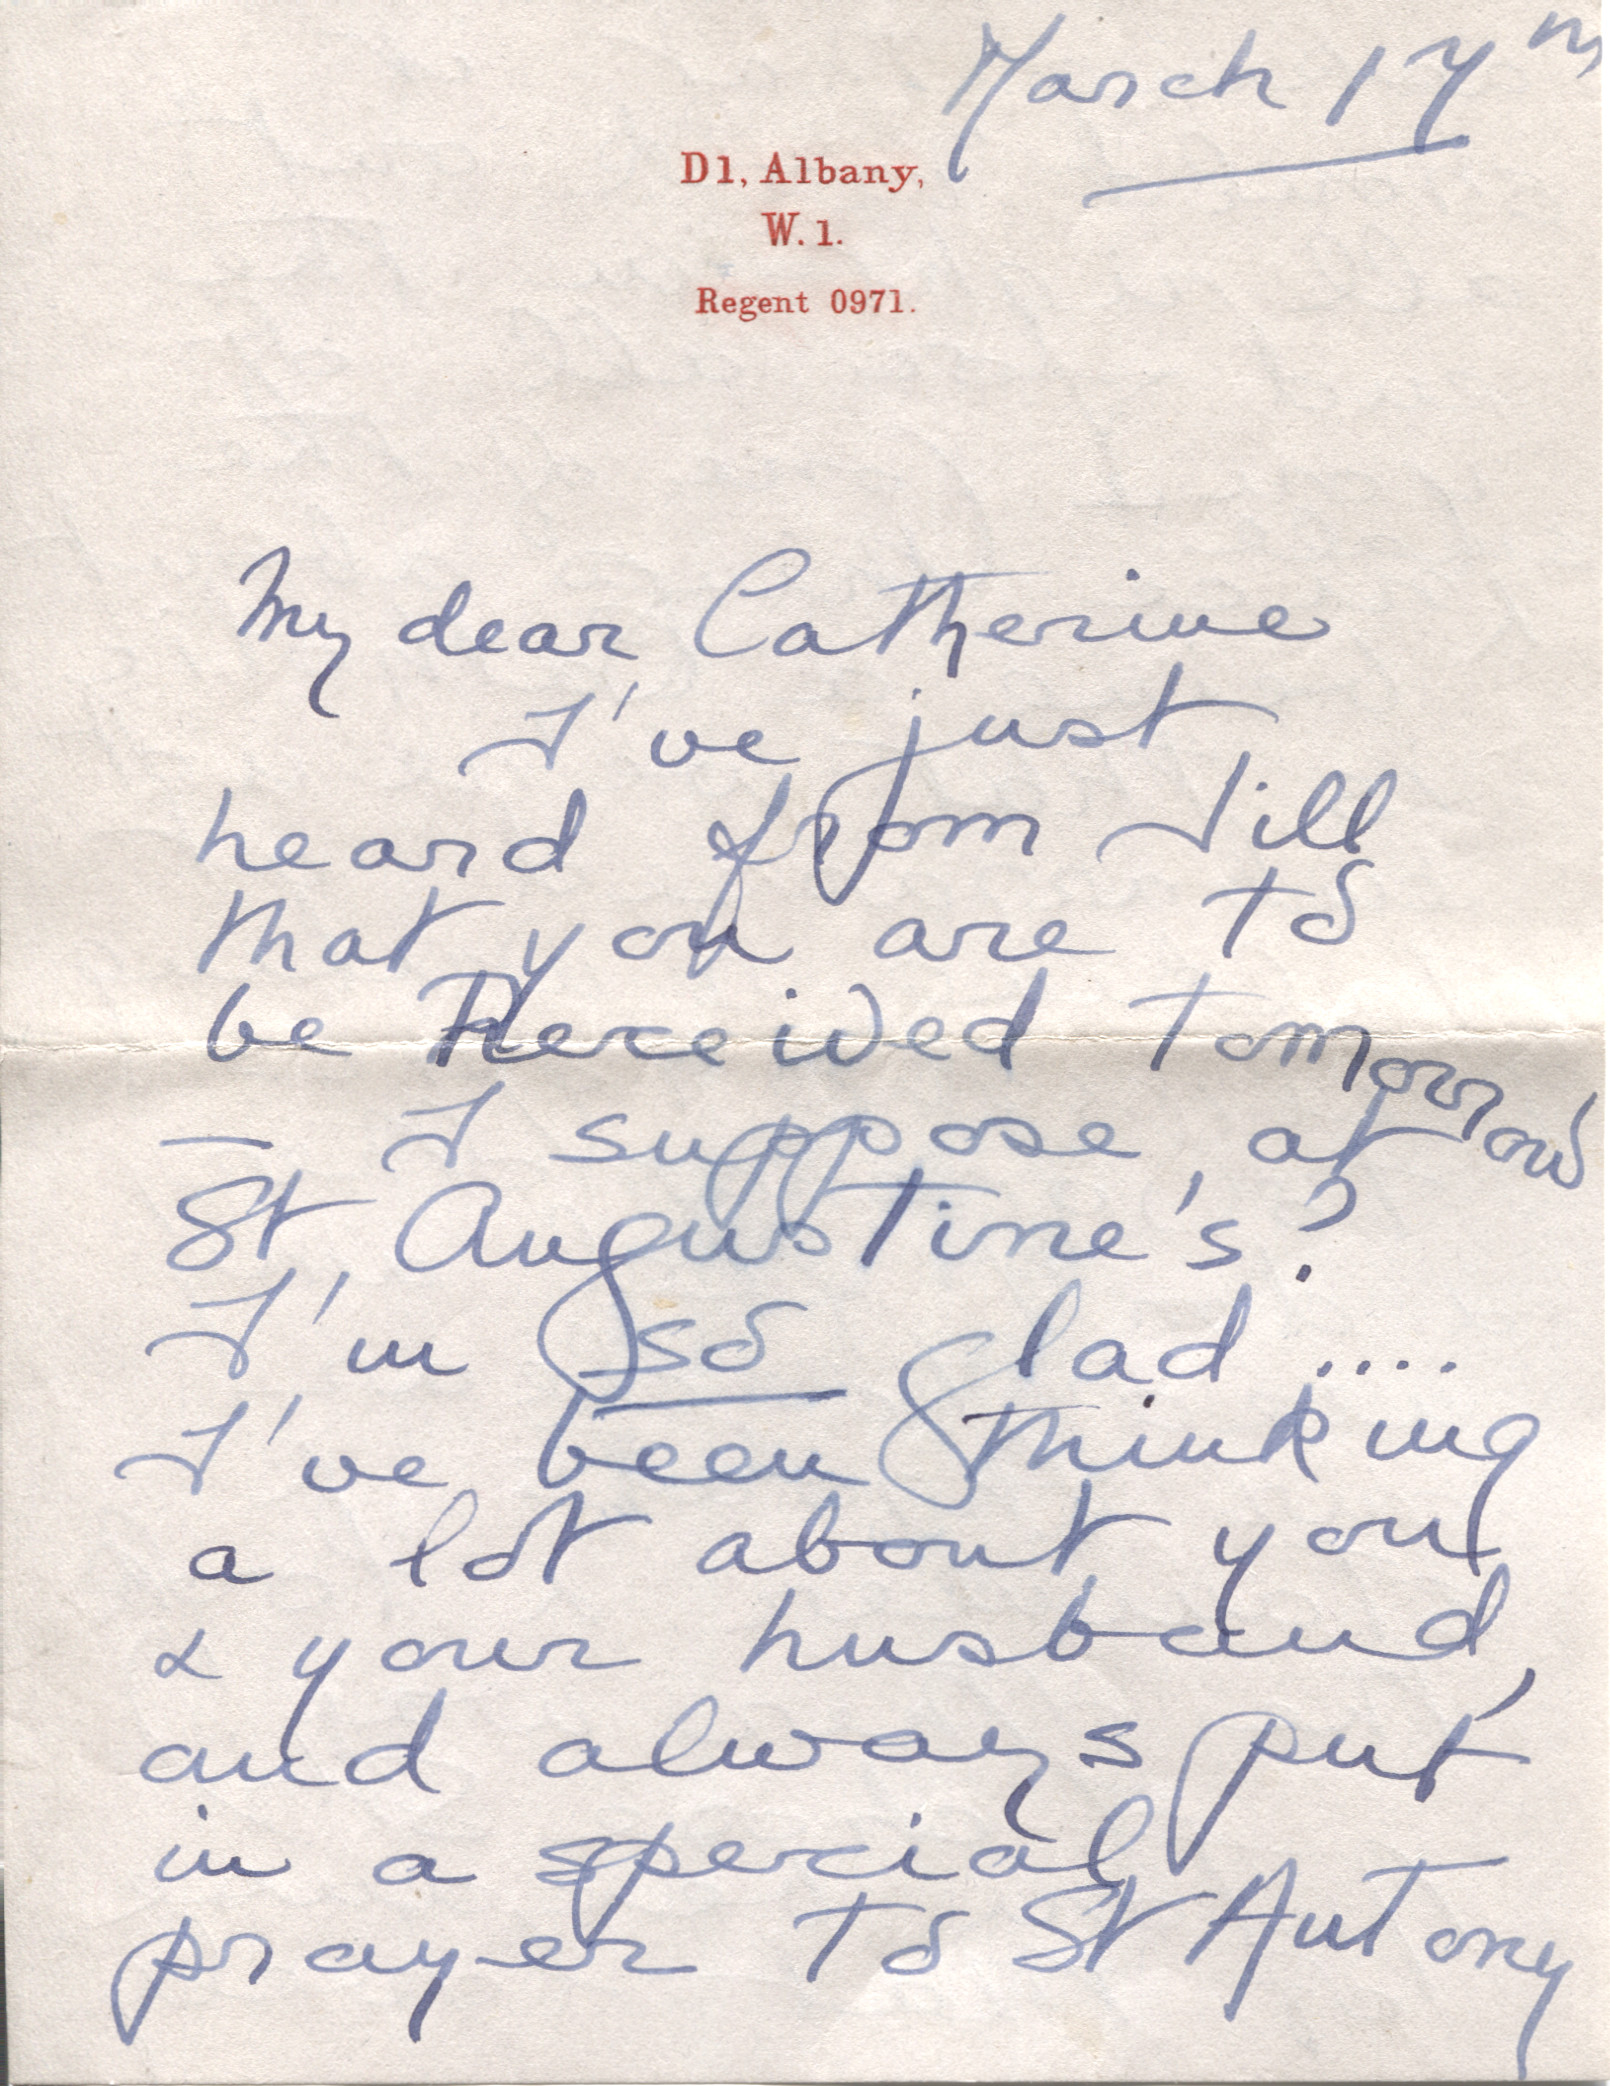 March 17th
D1, Albany,
W. 1.
Regent 0971.
My dear Catherine
I've just
heard from Jill
that you are to
be Received tomorrow
— I suppose, at
St Augustine's?
I'm so glad ....
I've been thinking
a lot about you
& your husband,
and always put
in a special
prayer to St Antony